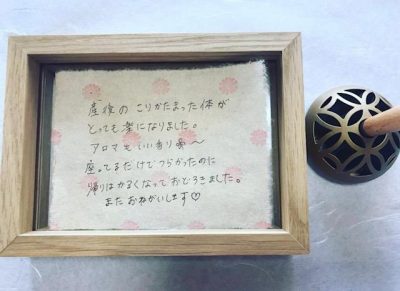 産後の こりかたまった体が
とっても楽になりました。
アロマも いい香り〜
座ってるだけでつらかったのに
帰りはかるくなっておどろきました。
また おねがいします♡